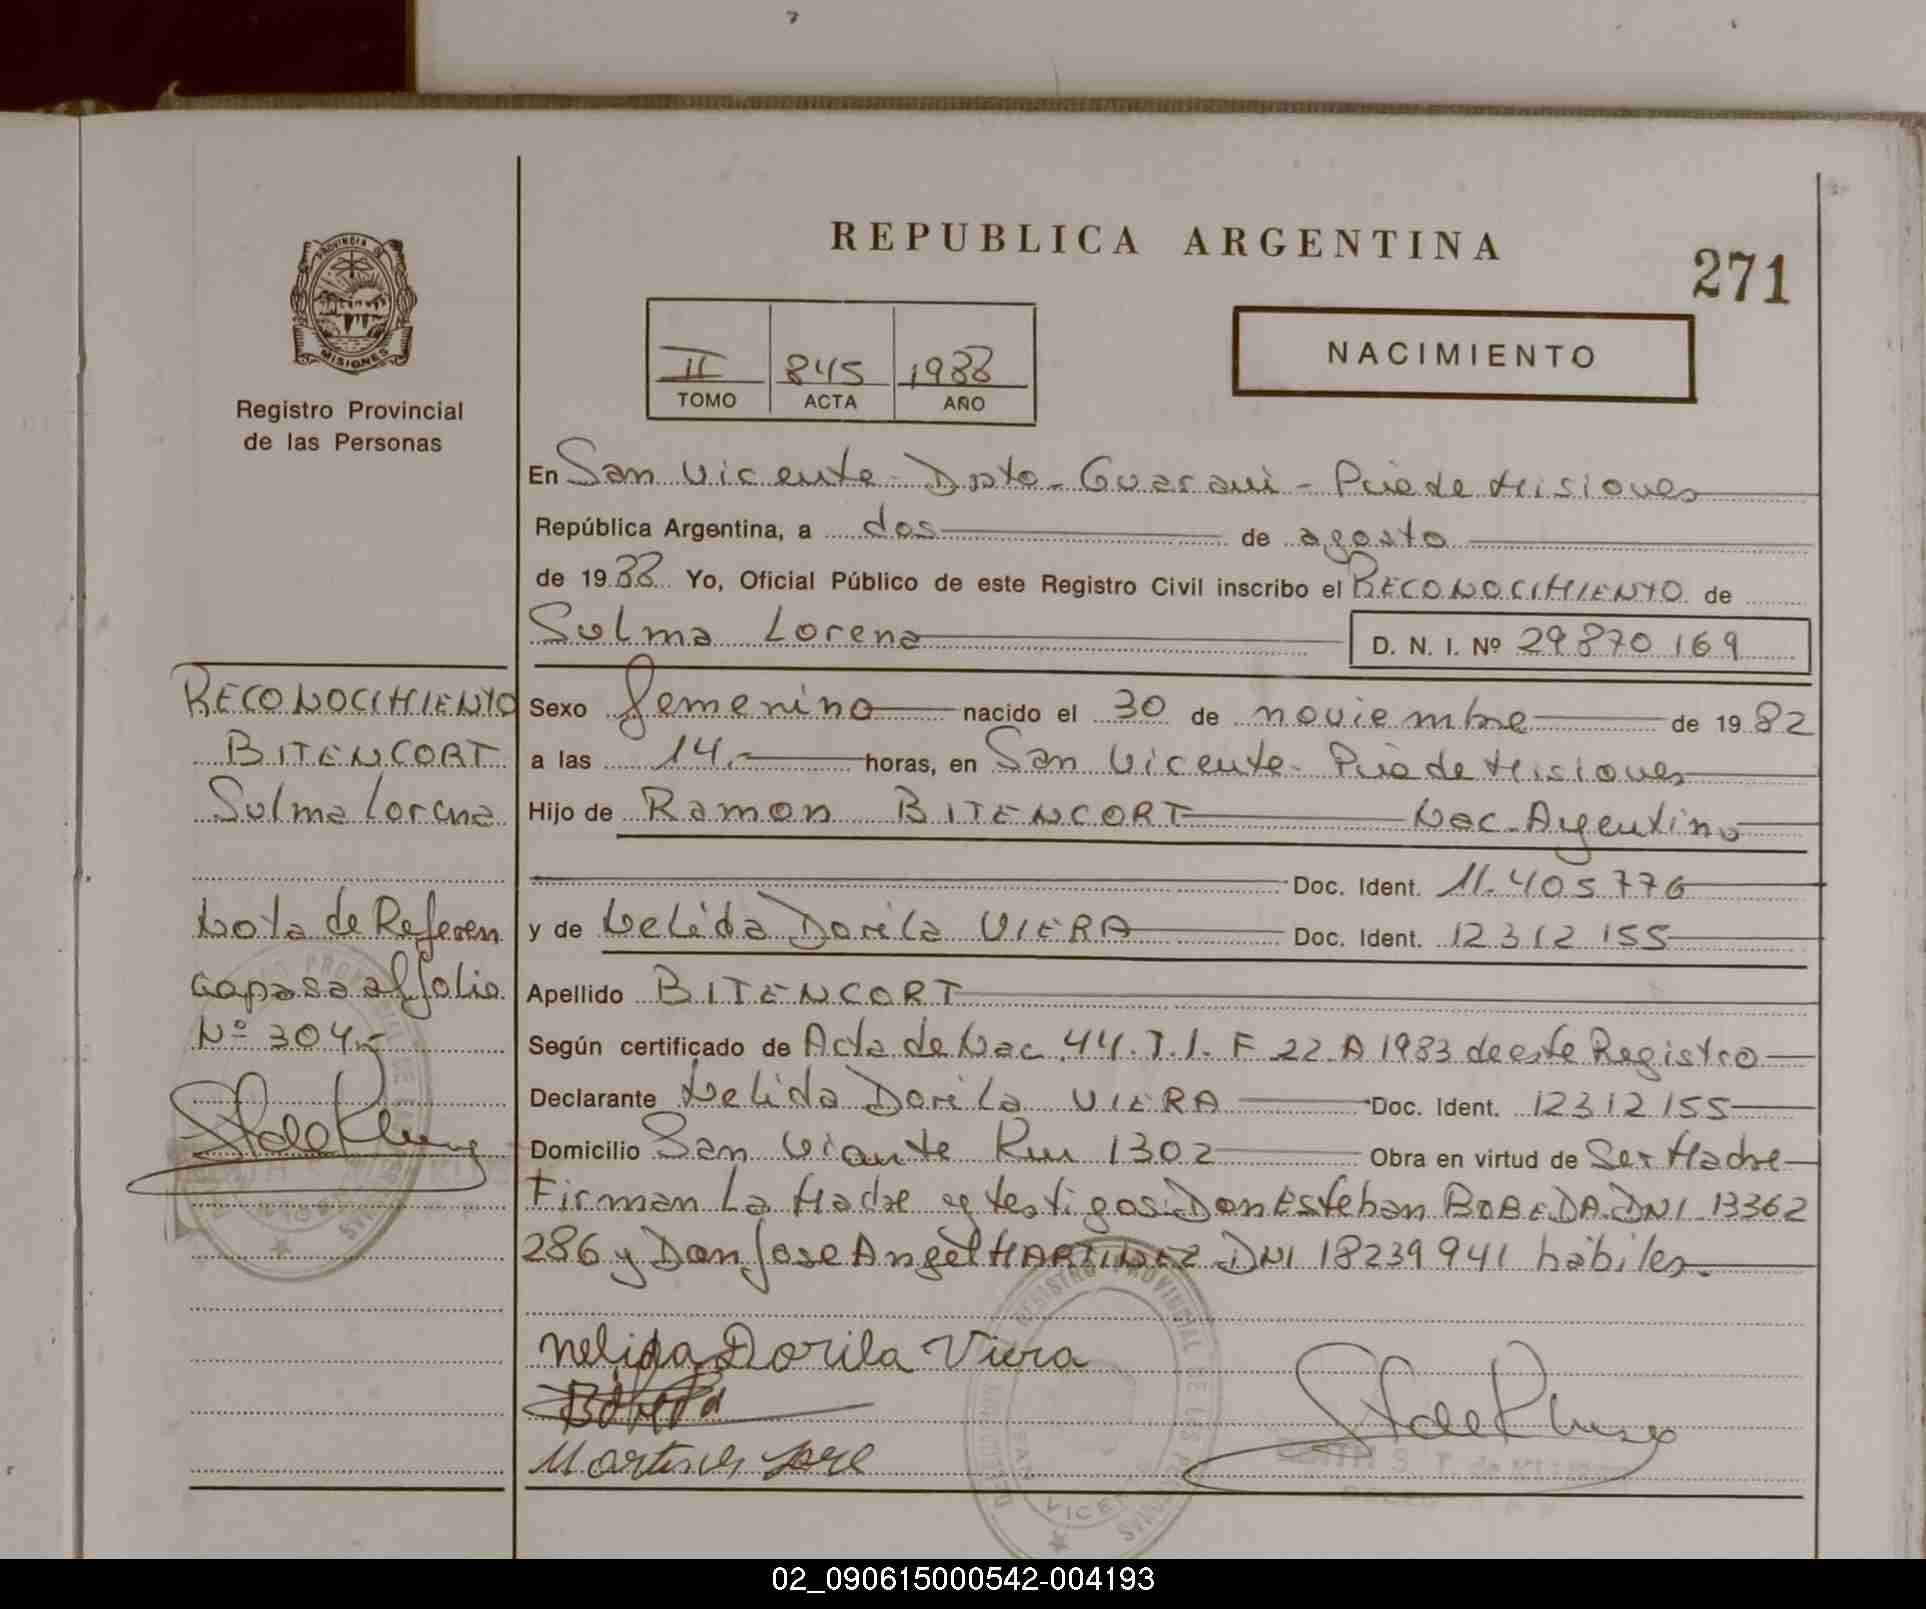 REPUBLICA ARGENTINA
271
PROVINCIA DE
MISIONES
Registro Provincial
de las Personas
II 845 1988
TOMO ACTA AÑO
NACIMIENTO
En San Vicente - Dpto - Guarani - Pcia de Misiones
República Argentina, a dos de agosto
de 1988 Yo, Oficial Público de este Registro Civil inscribo el RECONOCIMIENTO de
Sulma Lorena D. N. I. Nº 29870169
RECONOCIMIENTO
BITENCORT
Sulma Lorena
Nota de Referen
cia pasa al folio
Nº 304.-
Sexo femenino nacido el 30 de noviembre de 1982
a las 14.- horas, en San Vicente - Pcia de Misiones
Hijo de Ramon BITENCORT Nac. Argentino
Doc. Ident. 11.405776
y de Nelida Dorila VIERA Doc. Ident. 12312155
Apellido BITENCORT
Según certificado de Acta de Nac. 44. T. I. F 22. A 1983 de este Registro
Declarante Nelida Dorila VIERA Doc. Ident. 12312155
Domicilio San Vicente Km 1302 Obra en virtud de Ser Madre
Firman La Madre y testigos: Don Esteban BOBEDA. DNI. 13362
286 y Don Jose Angel MARTINEZ DNI 18239941 hábiles.
Nelida Dorila Viera
Bobeda
Martines Jose
REGISTRO PROVINCIAL DE LAS PERSONAS
02_090615000542-004193